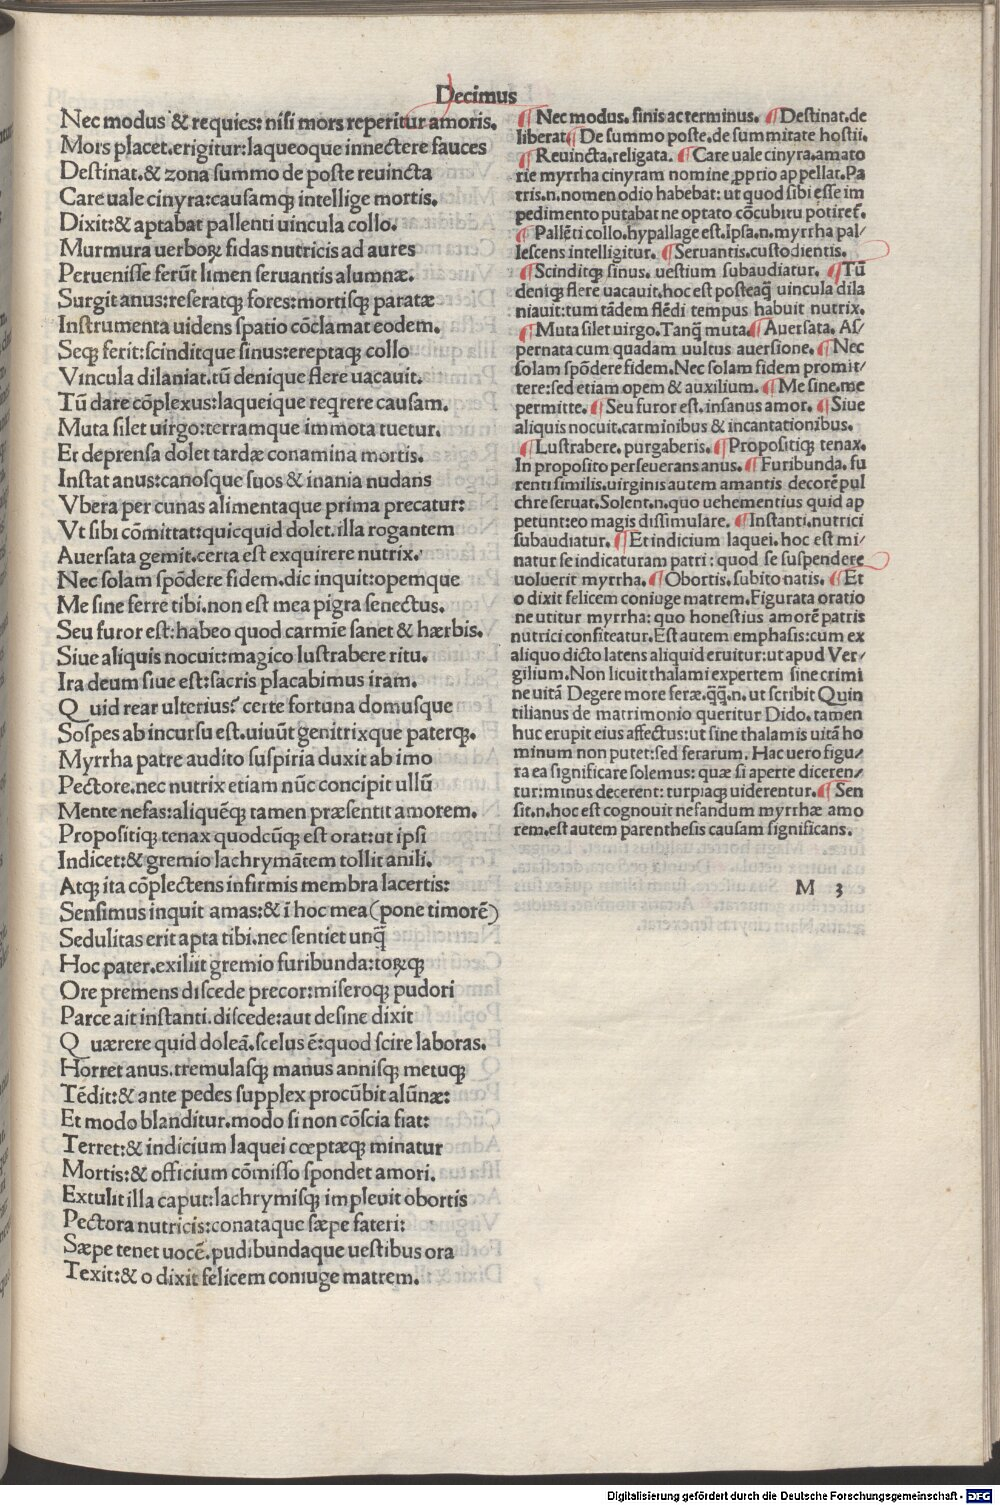 Decimus
Nec modus & requies: nisi mors reperitur amoris.
Mors placet.erigitur:laqueoque innectere fauces
Destinat.& zona summo de poste reuincta
Care uale cinyra:causamqꝫ intellige mortis.
Dixit:& aptabat pallenti uincula collo.
Murmura uerboꝝ fidas nutricis ad aures
Peruenisse ferūt limen seruantis alumnæ.
Surgit anus:reseratqꝫ fores:mortisqꝫ paratæ
Instrumenta uidens spatio cōclamat eodem.
Seqꝫ ferit:scinditque sinus:ereptaqꝫ collo
Vincula dilaniat.tū denique flere uacauit.
Tū dare cōplexus:laqueique reqrere causam.
Muta silet uirgo:terramque immota tuetur.
Et deprensa dolet tardæ conamina mortis.
Instat anus:canosque suos & inania nudans
Vbera per cunas alimentaque prima precatur:
Vt sibi cōmittat:quicquid dolet.illa rogantem
Auersata gemit.certa est exquirere nutrix.
Nec solam spōdere fidem.dic inquit:opemque
Me sine ferre tibi.non est mea pigra senectus.
Seu furor est:habeo quod carmīe sanet & hærbis.
Siue aliquis nocuit:magico lustrabere ritu.
Ira deum siue est:sacris placabimus iram.
Quid rear ulterius? certe fortuna domusque
Sospes ab incursu est.uiuūt genitrixque paterqꝫ.
Myrrha patre audito suspiria duxit ab imo
Pectore.nec nutrix etiam nūc concipit ullū
Mente nefas:aliquēqꝫ tamen præsentit amorem.
Propositiqꝫ tenax quodcūqꝫ est orat:ut ipsi
Indicet:& gremio lachrymātem tollit anili.
Atqꝫ ita cōplectens infirmis membra lacertis:
Sensimus inquit amas:& ī hoc mea (pone timorē)
Sedulitas erit apta tibi.nec sentiet unq̄
Hoc pater.exiliit gremio furibunda:toꝝqꝫ
Ore premens discede precor:miseroqꝫ pudori
Parce ait instanti.discede:aut desine dixit
Quærere quid doleā.scelus ē:quod scire laboras.
Horret anus.tremulasqꝫ manus annisqꝫ metuqꝫ
Tēdit:& ante pedes supplex procūbit alūnæ:
Et modo blanditur.modo si non cōscia fiat:
Terret:& indicium laquei cœptæqꝫ minatur
Mortis:& officium cōmisso spondet amori.
Extulit illa caput:lachrymisqꝫ impleuit obortis
Pectora nutricis:conataque sæpe fateri:
Sæpe tenet uocē.pudibundaque uestibus ora
Texit:& o dixit felicem coniuge matrem.
¶Nec modus. finis ac terminus. ¶Destinat.de
liberat¶De summo poste.de summitate hostii.
¶Reuincta.religata. ¶Care uale cinyra.amato
rie myrrha cinyram nomine ꝓprio appellat.Pa
tris.n.nomen odio habebat: ut quod sibi esse im
pedimento putabat ne optato cōcubitu potiret̄.
¶Pallēti collo.hypallage est.Ipsa.n.myrrha pal⸗
lescens intelligitur. ¶Seruantis.custodientis.
¶Scinditqꝫ sinus. uestium subaudiatur. ¶Tū
deniqꝫ flere uacauit.hoc est posteaq̄ uincula dila
niauit:tum tādem flēdi tempus habuit nutrix.
¶Muta silet uirgo.Tanq̄ muta.¶Auersata. As⸗
pernata cum quadam uultus auersione. ¶Nec
solam spōdere fidem.Nec solam fidem promit⸗
tere:sed etiam opem & auxilium. ¶Me sine.me
permitte. ¶Seu furor est.insanus amor. ¶Siue
aliquis nocuit.carminibus & incantationibus.
¶Lustrabere.purgaberis.¶Propositiqꝫ tenax.
In proposito perseuerans anus.¶Furibunda.fu
renti similis.uirginis autem amantis decorē pul
chre seruat.Solent.n.quo uehementius quid ap
petunt:eo magis dissimulare. ¶Instanti.nutrici
subaudiatur. ¶Et indicium laquei.hoc est mi⸗
natur se indicaturam patri : quod se suspendere
uoluerit myrrha.¶Obortis.subito natis. ¶Et
o dixit felicem coniuge matrem.Figurata oratio
ne utitur myrrha: quo honestius amorē patris
nutrici confiteatur.Est autem emphasis:cum ex
aliquo dicto latens aliquid eruitur:ut apud Ver⸗
gilium.Non licuit thalami expertem sine crimi
ne uitā Degere more feræ.q̄q̄.n.ut scribit Quin
tilianus de matrimonio queritur Dido.tamen
huc erupit eius affectus:ut sine thalamis uitā ho
minum non putet:sed ferarum.Hac uero figu⸗
ra ea significare solemus: quæ si aperte diceren⸗
tur:minus decerent:turpiaqꝫ uiderentur.¶Sen
sit.n.hoc est cognouit nefandum myrrhæ amo
rem.est autem parenthesis causam significans.
M 3
Digitalisierung gefördert durch die Deutsche Forschungsgemeinschaft - DFG